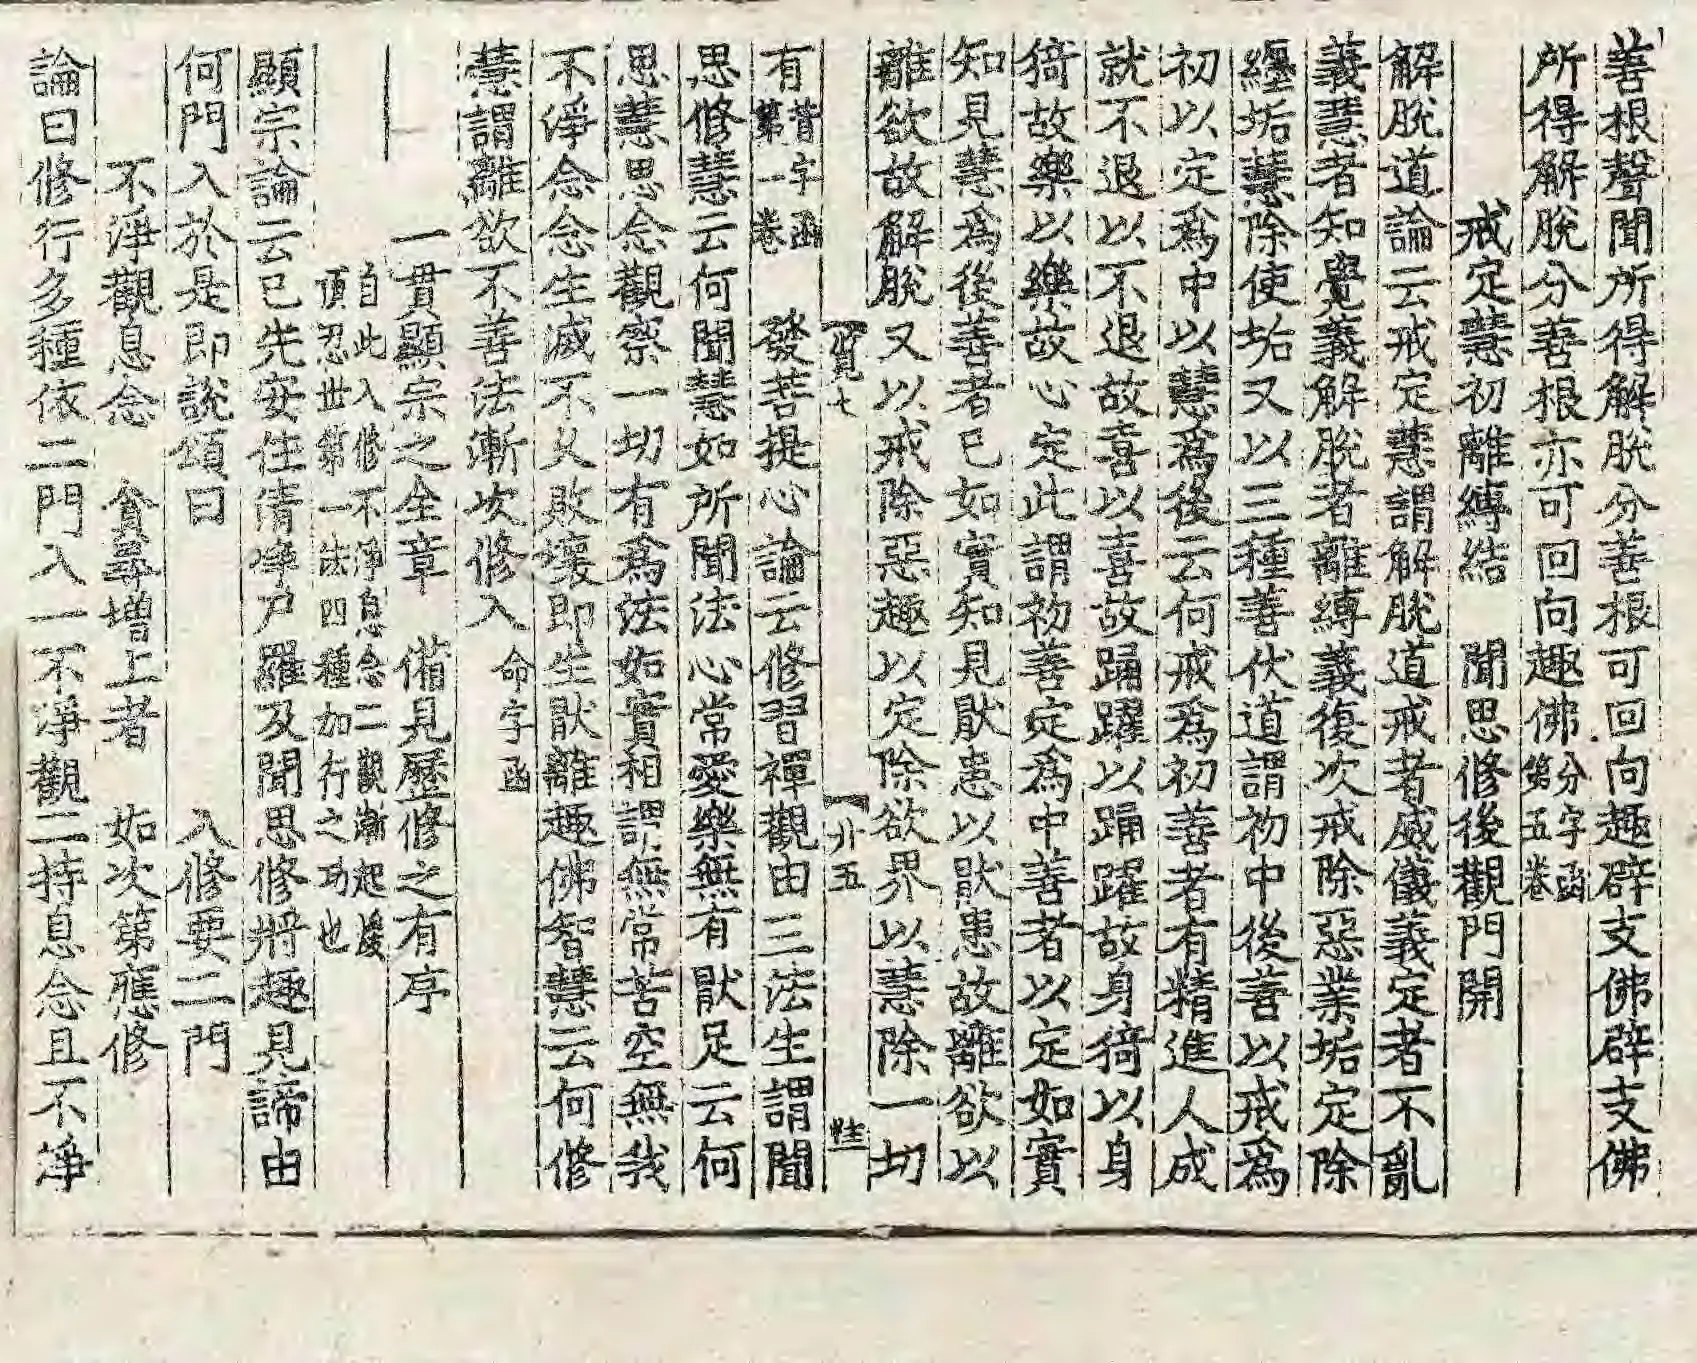 善根聲聞所得解脫分善根可回向趣辟支佛辟支佛
所得解脫分善根亦可回向趣佛分字函第五卷
戒定慧初離縛結　聞思修後觀門開
解脫道論云戒定慧謂解脫道戒者威儀義定者不亂
義慧者知覺義解脫者離縛義復次戒除惡業垢定除
纏垢慧除使垢又以三種善伏道謂初中後善以戒爲
初以定爲中以慧爲後云何戒爲初善者有精進人成
就不退以不退故喜以喜故踊躍以踊躍故身猗以身
猗故樂以樂故心定此謂初善定爲中善者以定如實
知見慧爲後善者已如實知見猒患以猒患故離欲以
離欲故解脫又以戒除惡趣以定除欲界以慧除一切
有昔字函第一卷　發菩提心論云修習禪觀由三法生謂聞
思修慧云何聞慧如所聞法心常愛樂無有猒足云何
思慧思念觀察一切有爲法如實相謂無常苦空無我
不淨念念生滅不久敗壞即生猒離趣佛智慧云何修
慧謂離欲不善法漸次修入命字函
一貫顯宗之全章　備見歷修之有序
自此入修不淨息念二觀漸起煖
頂忍世第一法四種加行之功也
顯宗論云已先安住清淨戶羅及聞思修將趣見諦由
何門入於是即說頌曰　入修要二門
不淨觀息念　貪尋增上者　如次第應修
論曰修行多種依二門入一不淨觀二持息念且不淨